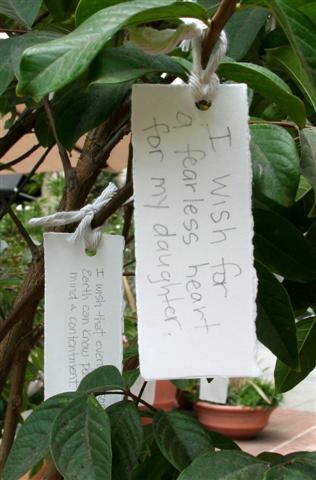 I wish for
a fearless heart
for my daughter.
I wish that ever
Earth can know
mind & contentment